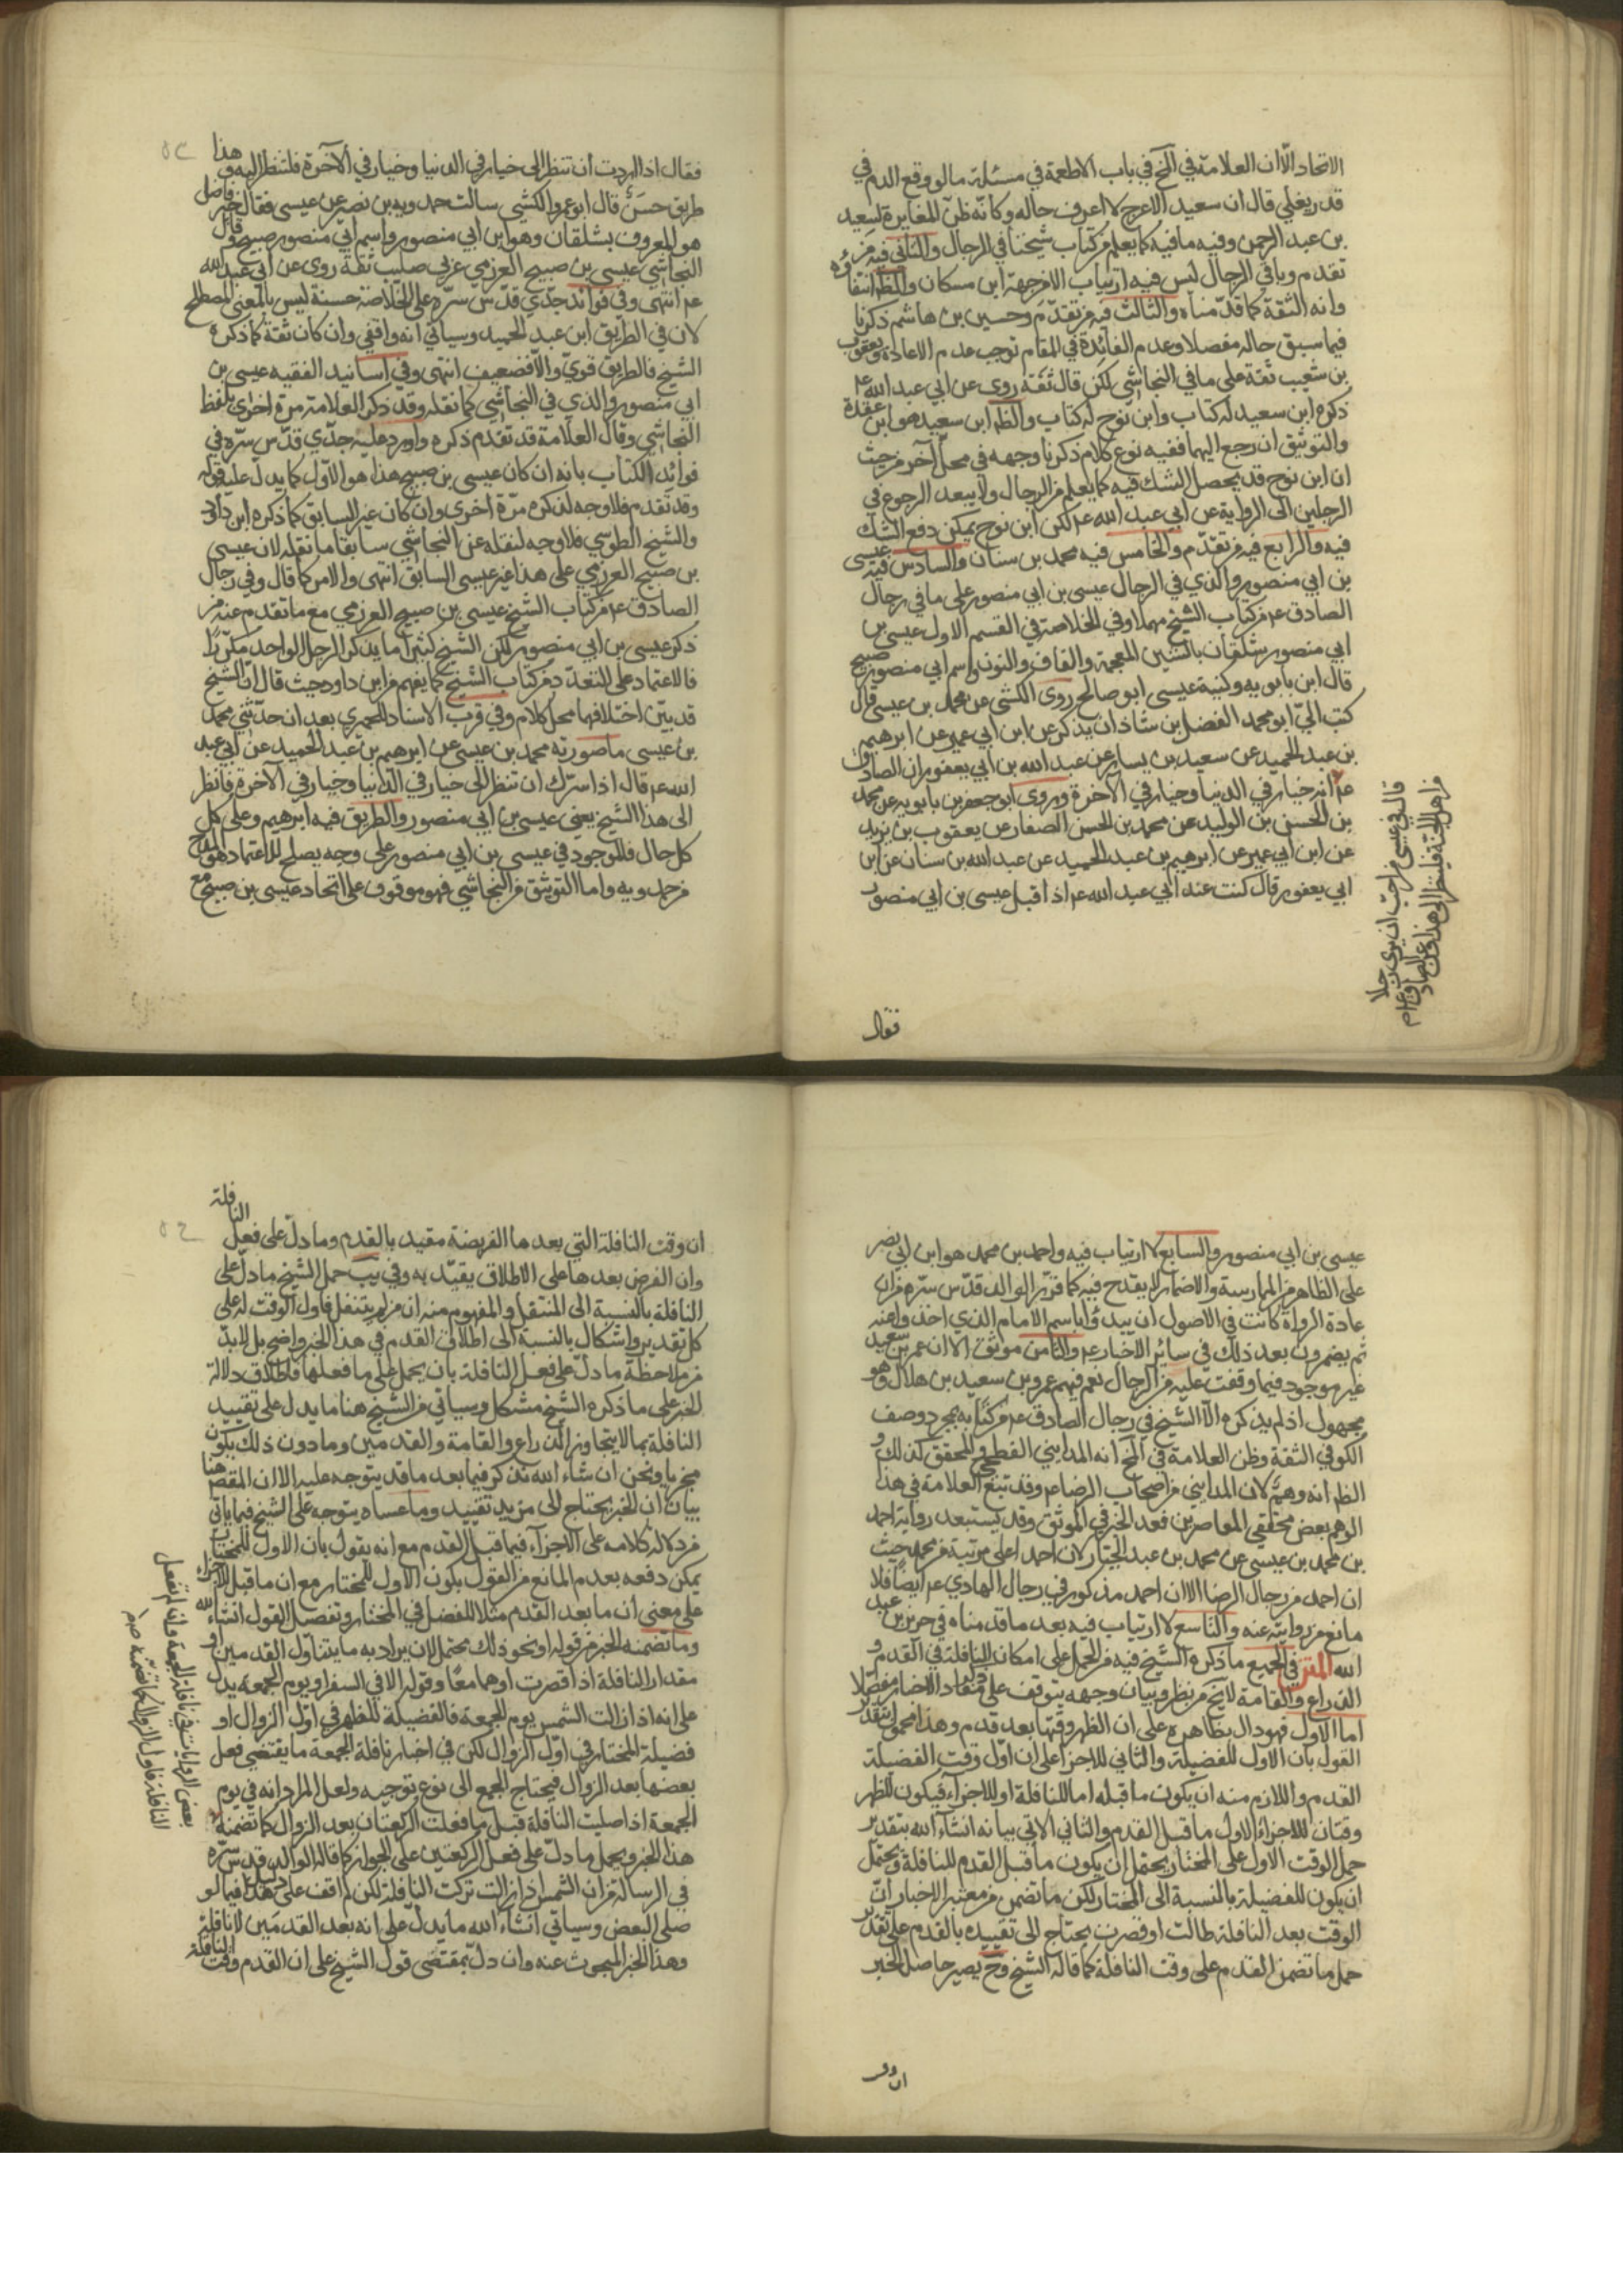 الاتحاد الّا ان العلامة في المخ في باب الاطعمة في مسئلة ما لو وقع الدم في
قدر يغلي قال ان سعيد الاعرج لا اعرف حاله وكانّه ظنّ المغايرة لسعيد
بن عبد الرحمن وفيه ما فيه كما يعلم من كتاب شيخنا في الرجال والثاني فيه من
تقدم وباقي الرجال ليس فيه ارتياب الا من جهة ابن مسكان والظ انتفاؤه
وانه الثقة كما قدّمناه والثالث فيه من تقدّم وحسين بن هاشم ذكرنا
فيما سبق حاله مفصلا وعدم الفائدة في المقام توجب عدم الاعادة ويعقوب
بن شعيب ثقة على ما في النجاشي لكن قال ثقة روى عن ابي عبد الله ع
ذكره ابن سعيد له كتاب وابن نوح له كتاب والظ ابن سعيد هو ابن عقدة
والتوثيق ان رجع اليهما ففيه نوع كلام ذكرنا وجهه في محل آخر من حيث
ان ابن نوح قد يحصل الشك فيه كما يعلم من الرجال ولا يبعد الرجوع في
الرجلين الى الرواية عن ابي عبد الله ع لكن ابن نوح يمكن دفع الشك
فيه والرابع فيه من تقدّم والخامس فيه محمد بن سنان والسادس فيه عيسى
بن ابي منصور والذي في الرجال عيسى بن ابي منصور على ما في رجال
الصادق ع من كتاب الشيخ مهملا وفي الخلاصة في القسم الاول عيسى بن
ابي منصور شلقان بالشين المعجمة والقاف والنون واسم ابي منصور صبيح
قال ابن بابويه وكنية عيسى ابو صالح روى الكشي عن محمد بن عيسى قال
كتب اليّ ابو محمد الفضل بن شاذان يذكر عن ابن ابي عمير عن ابرهيم
بن عبد الحميد عن سعيد بن يسار عن عبد الله بن ابي يعفور ان الصادق
ع انه خيار في الدنيا وخيار في الآخرة وروى ابو جعفر بن بابويه عن محمد
بن الحسن بن الوليد عن محمد بن الحسن الصفار عن يعقوب بن يزيد
عن ابن ابي عمير عن ابرهيم بن عبد الحميد عن عبد الله بن سنان عن ابن
ابي يعفور قال كنت عند ابي عبد الله ع اذ اقبل عيسى بن ابي منصور
قال في عيسى من احب ان يرى رجلا
من اهل الجنة فلينظر الى هذا
فقال
فقال اذا اردت أن تنظر الى خيار في الدنيا وخيار في الآخرة فلتنظر اليه وهذا
طريق حسنٌ قال ابو عمرو الكشي سالت حمدويه بن نصير عن عيسى فقال خير فاضل
هو المعروف بشلقان وهو ابن ابي منصور واسم ابي منصور صبيح وقال
النجاشي عيسى بن صبيح العرزمي عربي صليب ثقة روى عن ابي عبد الله
ع انتهى وفي فوائد جدّي قدّس سرّه على الخلاصة حسنة ليس بالمعنى المصطلح
لان في الطريق ابن عبد الحميد وسياتي انه واقفي وان كان ثقة كما ذكره
الشيخ فالطريق قويّ والّا فضعيف انتهى وفي اسانيد الفقيه عيسى بن
ابي منصور والذي في النجاشي كما نقله وقد ذكر العلامة مرة اخرى بلفظ
النجاشي وقال العلّامة قد تقدم ذكره واورد عليه جدّي قدّس سرّه في
فوائد الكتاب بانه ان كان عيسى بن صبيح هذا هو الاوّل كما يدلّ عليه قوله
وقد تقدم فلا وجه لذكره مرّة أخرى وان كان غير السابق كما ذكره ابن داود
والشيخ الطوسي فلا وجه لنقله عن النجاشي سابقا ما نقله لان عيسى
بن صبيح العرزمي على هذا غير عيسى السابق انتهى والامر كما قال وفي رجال
الصادق ع من كتاب الشيخ عيسى بن صبيح العرزمي مع ما تقدم عنه من
ذكر عيسى بن ابي منصور لكن الشيخ كثيرا ما يذكر الرجل الواحد مكرّرًا
فالاعتماد على التعدد من كتاب الشيخ كما يفهم من ابن داود حيث قال انّ الشيخ
قد بيّن اختلافهما محل كلام وفي قرب الاسناد للحميري بعد ان حدّثني محمد
بن عيسى ما صورته محمد بن عيسى عن ابرهيم بن عبد الحميد عن ابي عبد
الله ع قال اذا سرّك ان تنظر الى خيار في الدنيا وخيار في الآخرة فانظر
الى هذا الشيخ يعني عيسى بن ابي منصور والطريق فيه ابرهيم وعلى كل
كل حال فالموجود في عيسى بن ابي منصور على وجه يصلح للاعتماد هو المدح
من حمدويه واما التوثيق من النجاشي فهو موقوف على اتحاد عيسى بن صبيح مع
عيسى بن ابي منصور والسابع لا ارتياب فيه واحمد بن محمد هو ابن ابي نصر
على الظاهر من الممارسة والاضمار لا يقدح فيه كما قرّر الوالد قدّس سرّه من ان
عادة الرواة كانت في الاصول ان يبدؤا باسم الامام الذي اخذوا عنه
ثم يضمرون بعد ذلك في سائر الاخبار عنه والثامن موثق الا ان عمر بن سعيد
غير موجود فيما وقفت عليه من الرجال نعم فيهم عمرو بن سعيد بن هلال وهو
مجهول اذ لم يذكره الّا الشيخ في رجال الصادق ع من كتابه بمجرد وصف
الكوفي الثقة وظن العلامة في المخ انه المدايني الفطحي والمحقق كذلك و
الظ انه وهمٌ لان المدايني من اصحاب الرضا ع وقد تبع العلامة في هذا
الوهم بعض محققي المعاصرين فعد الخبر في الموثق وقد يستبعد رواية احمد
بن محمد بن عيسى عن محمد بن عبد الجبّار لان احمد اعلى مرتبة من محمد حيث
ان احمد من رجال الرضا الا ان احمد مذكور في رجال الهادي ع ايضًا فلا
مانع من روايته عنه والتاسع لا ارتياب فيه بعد ما قدمناه في حريز بن عبد
الله المتن في الجميع ما ذكره الشيخ فيه من الحمل على امكان النافلة في القدم و
الذراع والقامة لا يخ من نظر وبيان وجهه يتوقف على مفاد الاخبار مفصلا
اما الاول فهو دال بظاهره على ان الظهر وقتها بعد قدم وهذا محمول بتقدير
القول بان الاول للفضيلة والثاني للاجزا على ان اوّل وقت الفضيلة
القدم واللازم منه ان يكون ما قبله اما للنافلة او للاجزاء فيكون للظهر
وقتان للاجزاء الاول ما قبل القدم والثاني الاتي بيانه انشاء الله بتقدير
حمل الوقت الأول على المختار يحتمل ان يكون ما قبل القدم للنافلة ويحتمل
ان يكون للفضيلة بالنسبة الى المختار لكن ما تضمن من معتبر الاخبار انّ
الوقت بعد النافلة طالت او قصرت يحتاج الى تقييده بالقدم على تقدير
حمل ما تضمن القدم على وقت النافلة كما قاله الشيخ وح يصير حاصل الخبر
ان وقت
ان وقت النافلة التي بعدها الفريضة مقيد بالقدم وما دل على فعل النافلة
وان الفرض بعدها على الاطلاق يقيّد به وفي يب حمل الشيخ ما دلّ على
النافلة بالنسبة الى المتنفل والمفهوم منه ان من لم يتنفل فاول الوقت له على
كل تقدير واشكال بالنسبة الى اطلاق القدم في هذا الخبر واضح بل لا بدّ
من ملاحظة ما دلّ على فعل النافلة بان يحمل على ما فعلها فاطلاق دلالة
الخبر على ما ذكره الشيخ مشكل وسياتي من الشيخ هنا ما يدل على تقييد
النافلة بما لا يتجاوز الذراع والقامة والقدمين وما دون ذلك يكون
مجزيا ونحن ان شاء الله نذكر فيما بعد ما قد يتوجه عليه الا ان المقصد هنا
بيان ان الخبر يحتاج الى مزيد تقييد وما عساه يتوجه على الشيخ فيما ياتي
من دلالة كلامه على الاجزاء فيما قبل القدم مع انه يقول بان الاول للمختار
يمكن دفعه بعدم المانع من القول بكون الاول للمختار مع ان ما قبل للاجزاء
على معنى ان ما بعد القدم مثلا للفضل في المختار وتفصيل القول انشاء الله
وما تضمنه الخبر من قوله او نحو ذلك يحتمل لان يراد به ما يتناول القدمين او
مقدار النافلة اذا قصرت او هما معًا وقوله الا في السفر او يوم الجمعة يدل
على انه اذا زالت الشمس يوم الجمعة فالفضيلة للظهر في اوّل الزوال او
فضيلة المختار في اوّل الزوال لكن في اخبار نافلة الجمعة ما يقتضي فعل
بعضها بعد الزوال فيحتاج الجمع الى نوع توجيه ولعل المراد انه في يوم
الجمعة اذا صليت النافلة قبل ما فعلت الركعتان بعد الزوال كما تضمنه
هذا الخبر ويحمل ما دلّ على فعل الركعتين على الجواز كما قاله الوالد قدس سره
في الرسالة من ان الشمس اذا زالت تركت النافلة لكن لم اقف على هذا فيما لو
صلى البعض وسياتي انشاء الله ما يدلّ على انه بعد القدمين لا نافلة
وهذا الخبر المبحوث عنه وان دلّ بمقتضى قول الشيخ على ان القدم وقت النافلة
بعض الروايات في نافلة الجمعة وان لم تفعل
النافلة فاول الزوال كما تضمنه